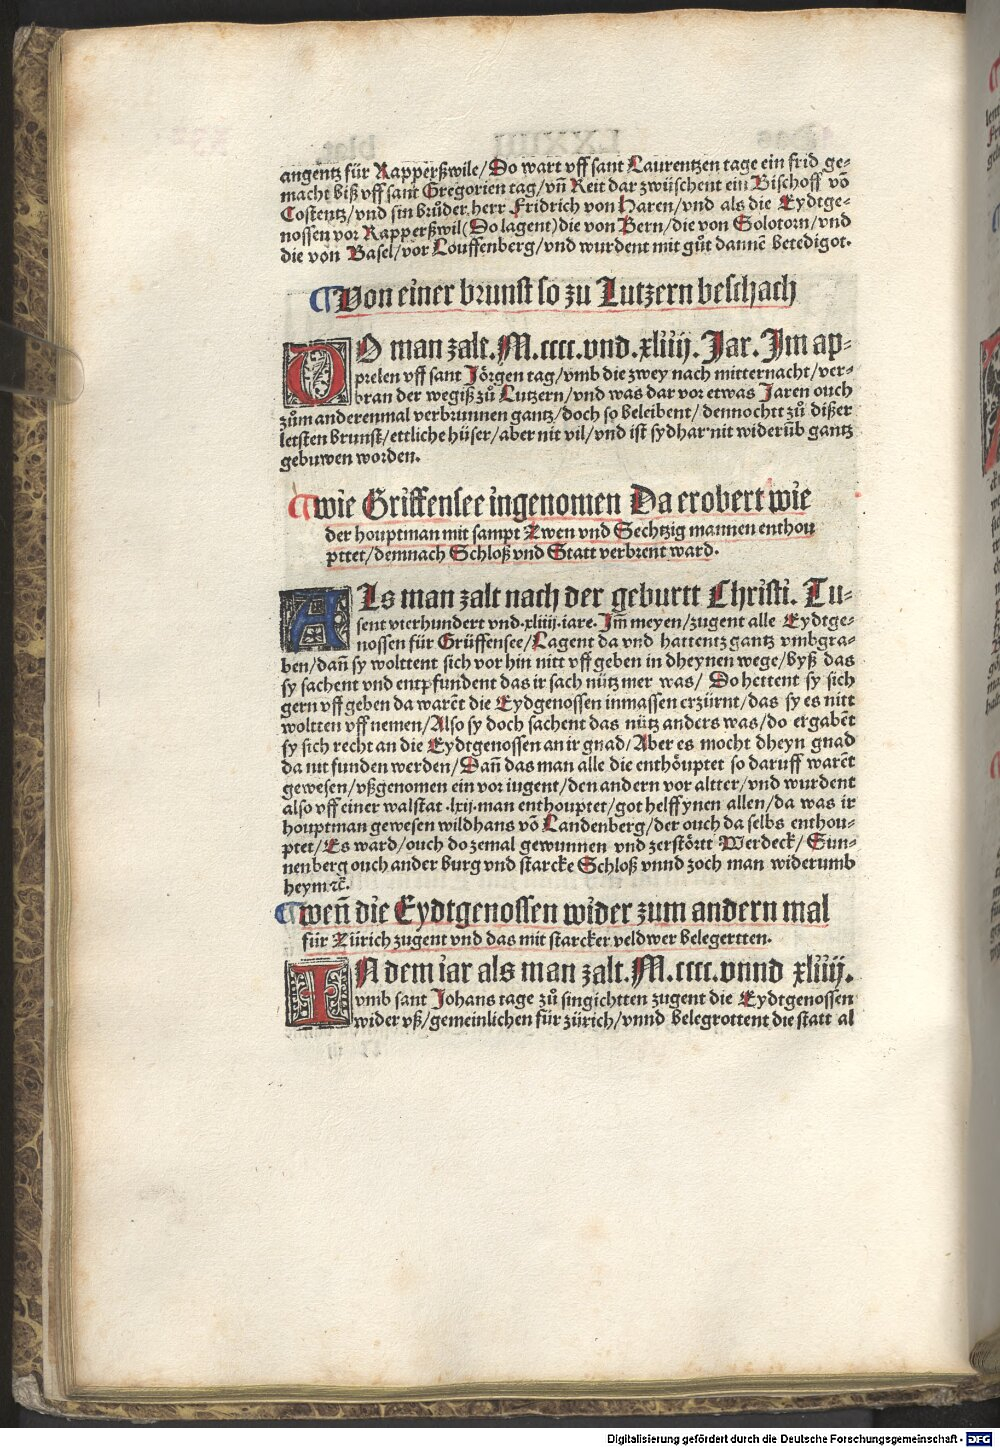 angentz für Rapperßwile/Do wart vff sant Laurentzen tage ein frid ge⸗
macht biß vff sant Gregorien tag/vñ Reit dar zwüschent ein Bischoff võ
Costentz/vnd sin brůder. herr Fridrich von Haren/vnd als die Eydtge⸗
nossen vor Rapperßwil(Do lagent)die von Bern/die von Solotorn/vnd
die von Basel/vor Louffenberg/vnd wurdent mit gůt dannẽ betedigot.
Von einer brunst so zu Lutzern beschach
DO man zalt.M.cccc.vnd.xliiij.Jar.Jm ap⸗
prelen vff sant Jörgen tag/vmb die zwey nach mitternacht/ver⸗
bran der wegiß zů Lutzern/vnd was dar vor etwas Jaren ouch
zům anderenmal verbrunnen gantz/doch so beleibent/dennochtt zů dißer
letsten brunst/ettliche hüser/aber nit vil/vnd ist sydhar nit widerüb gantz
gebuwen worden.
wie Griffensee ingenomen Da erobert wie
der houptman mit sampt Zwen vnd Sechtzig mannen enthou
pttet/demnach Schloß vnd Statt verbrent ward.
ALs man zalt nach der geburtt Christi. Tu⸗
sent vierhundert vnd.xliiij.iare.Jm̃ meyen/zugent alle Eydtge⸗
nossen für Grüffensee/Lagent da vnd hattentz gantz vmbgra⸗
ben/dañ sy wolttent sich vor hin nitt vff geben in dheynen wege/byß das
sy sachent vnd entpfundent das ir sach nütz mer was/ Do hettent sy sich
gern vff geben da warẽt die Eydgenossen inmassen erzürnt/das sy es nitt
woltten vff nemen/Also sy doch sachent das nütz anders was/do ergabẽt
sy sich recht an die Eydtgenossen an ir gnad/Aber es mocht dheyn gnad
da nit funden werden/Dañ das man alle die enthöuptet so daruff warẽt
gewesen/vßgenomen ein vor iugent/den andern vor altter/vnd wurdent
also vff einer walstat.lxij.man enthouptet/got helff ynen allen/da was ir
houptman gewesen wildhans võ Landenberg/der ouch da selbs enthou⸗
ptet/Es ward/ouch do zemal gewunnen vnd zerstörtt Werdeck/Sun⸗
nenberg ouch ander burg vnd starcke Schloß vnnd zoch man widerumb
heym ꝛc̃.
weñ die Eydtgenossen wider zum andern mal
für Zürich zugent vnd das mit starcker veldwer belegertten.
IN dem iar als man zalt.M.cccc.vnnd xliiij.
vmb sant Johans tage zů singichtten zugent die Eydtgenossen
wider vß/gemeinlichen für zürich/vnnd belegrottent die statt al
Digitalisierung gefördert durch die Deutsche Forschungsgemeinschaft - DFG